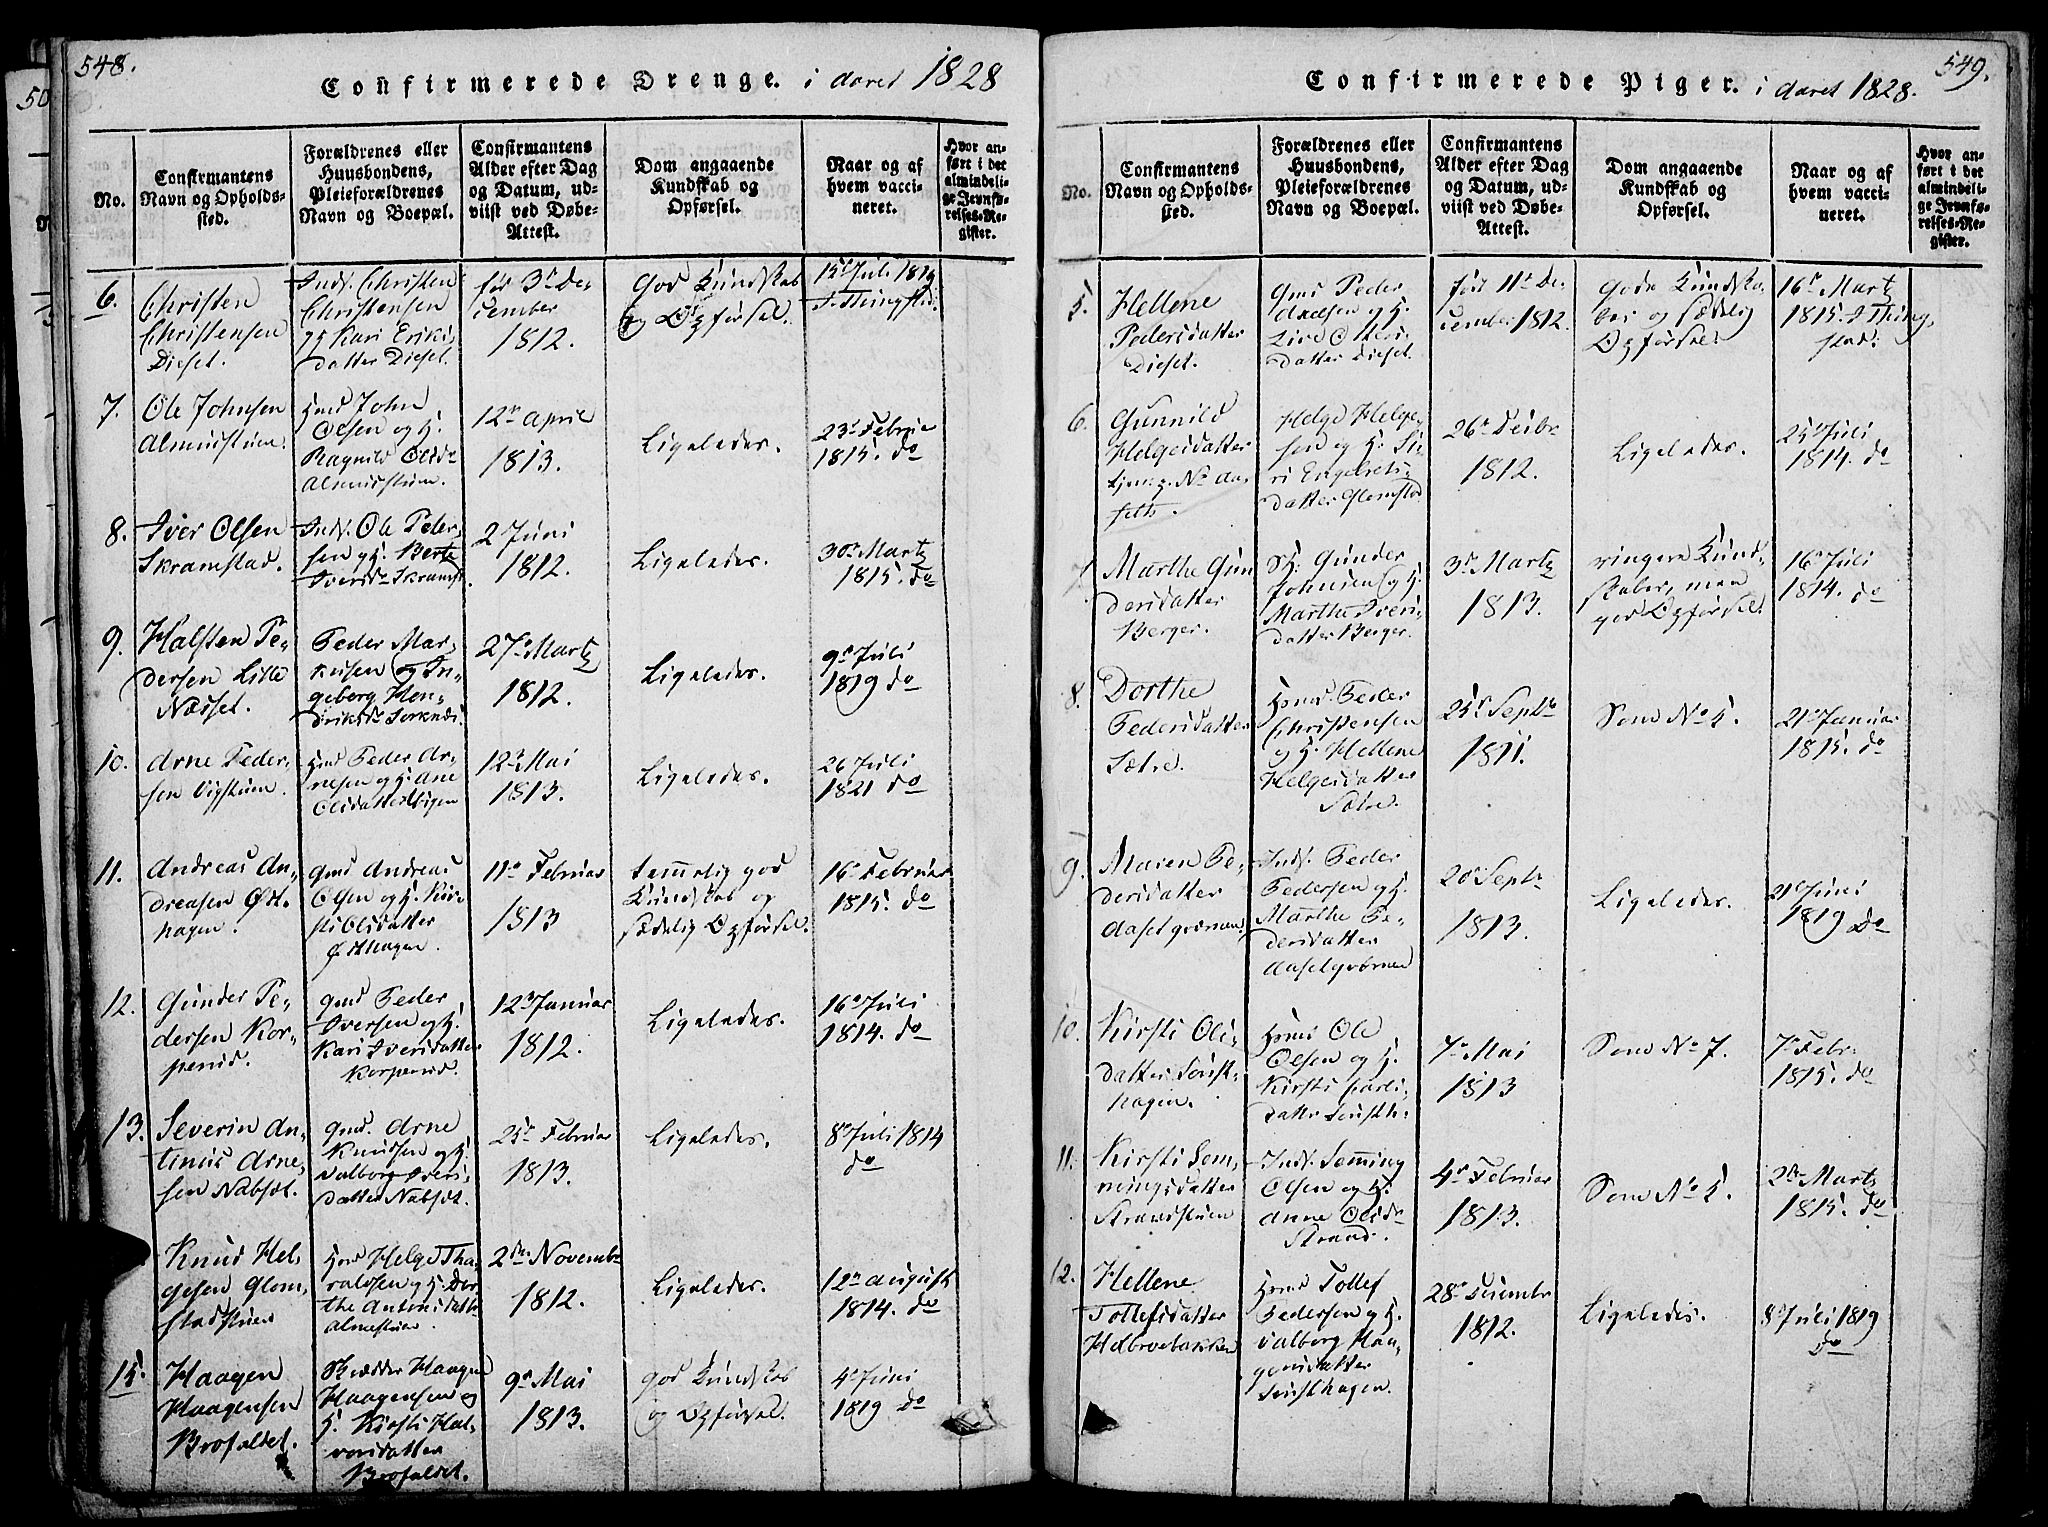 548.
Confirmerede Drenge. i Aaret 1828
No.
Confirmantens
Navn og Opholds-
sted.
Forældrenes eller
Huusbondens,
Pleieforældrenes
Navn og Boepæl.
Confirmantens
Alder efter Dag
og Datum, ud-
viist ved Døbe-
Attest.
Dom angaaende
Kundskab og
Opførsel.
Naar og af
hvem vacci-
neret.
Hvor an-
ført i det
almindeli-
ge Jevnfø-
relses-Re-
gister.
6.
Christen
Christensen
Dieset.
Inds. Christen
Christensen
og Kari Eriks
datter Dieset.
før 3de De
cember
1812.
God Kundskab
og Opførsel.
15de Juli 1819
7.
Ole Johnsen
Almuestuen.
Hmd John
Olsen og H.
Ragnild Olsdr
Almuestuen.
12te April
1813.
Ligeledes.
23de Februar
1815. do
8.
Iver Olsen
Skramstad.
Inds. Ole Peder-
sen og H. Berte
Iversdr Skramst.
2 Juni
1812.
Ligeledes.
30te Martz
1815. do
9.
Halsten Pe-
dersen Lille
Næsset.
Peder Mar-
kusen og In-
geborg Hen-
driksdr Sorknæs.
27de Martz
1812.
Ligeledes.
9de Juli
1819 do
10.
Arne Peder-
sen Vigstuen.
Hmd Peder Ar-
nesen og H. Ane
Olsdatter Vigen
12te Mai
1813.
Ligeledes.
26 Juli
1821 do
11.
Andreas An-
dreasen Øst-
hagen.
Gmd Andreas
Olsen og H. Kir-
sti Olsdatter
Østhagen.
11te Februar
1813
temmelig god
Kundskab og
sædelig Opførsel.
16de Februar
1815. do
12.
Gunder Pe-
dersen Kor-
perud.
Gmd Peder
Iversen og H.
Kari Iversdatter
Korperud.
12te Januar
1812.
Ligeledes.
16de Juli
1814. do
13.
Severin An-
tinus Arne-
sen Nabset.
Gmd. Arne
Knudsen og H.
Valborg Ivers-
datter Nabset.
25de Februar
1813.
Ligeledes.
8de Juli 1814
do
Knud Hel-
gesen Glom-
stadstuen
Hmd Helge Tha-
raldsen og H. Dor-
the Antonsdatter
Almestuen.
2den Novembr
1812.
Ligeledes.
12te August
1814. do
15.
Haagen
Haagensen
Brofaldet.
Skrædder Haagen
Haagensen og
H. Kirsti Hal-
vorsdatter
Brofaldet.
9de Mai
1813.
god Kundskab
og Opførsel.
4de Juni
1819 do
549.
Confirmerede Piger. i Aaret 1828.
No.
Confirmantens
Navn og Opholds-
sted.
Forældrenes eller
Huusbondens,
Pleieforældrenes
Navn og Boepæl.
Confirmantens
Alder efter Dag
og Datum, ud-
viist ved Døbe-
Attest.
Dom angaaende
Kundskab og
Opførsel.
Naar og af
hvem vacci-
neret.
Hvor an-
ført i det
almindeli-
ge Jevnfø-
relses-Re-
gister.
5.
Hellene
Pedersdatter
Dieset.
Gmd Peder
Axelsen og H.
Live Otters
datter Dieset.
født 11te De
cember 1812.
Gode Kundska
ber og sædelig
Opførsel
16de Martz
1815. I Thing
stad.
6.
Gunnild
Helgesdatter
Helge Helge-
sen og H. Si-
ri Engebrets-
datter Glomstad
26de Decbr
1812.
Ligeledes.
25de Juli
1814. do
7
Marthe Gun
dersdatter
Berger.
H. Gunder
Johnsen og H.
Marthe Ivers-
datter Berger.
3de Martz
1813.
ringere Kund-
skaber, men
god Opførsel.
16de Juli
1814. do
8.
Dorthe
Pedersdatter
Sætre.
Hmd. Peder
Christensen
og H. Hellene
Helgesdatter
Sætre.
25de Septr
1811.
Som No 5.
21de Januar
1815. do
9
Maren Pe-
dersdatter
Aasetgværnen
Inds. Peder
Pedersen og H.
Marthe Pe-
dersdatter
Aasetgværnen
20de Septr
1813.
Ligeledes.
21de Juni
1819 do
10.
Kirsti Ols-
datter Sørst-
hagen.
Hmd Ole
Olsen og H.
Kirsti Carls-
datter Sørsth.
7de Mai
1813
Som No 7.
7de Febr.
1815. do
11.
Kirsti Sem-
mingsdatter
Strandstuen
Inds. Semming
Olsen og H.
Anne Olsdr
Strand.
4de Februar
1813.
Som No 5.
Martz
1815. do
12.
Hellene
Tollefsdatter
Helbroebakken
Hmd Tollef
Pedersen og H.
Valborg Haa-
gensdatter
Sørsthagen.
28de Decembr
1812.
Ligeledes.
8de Juli 1819
do